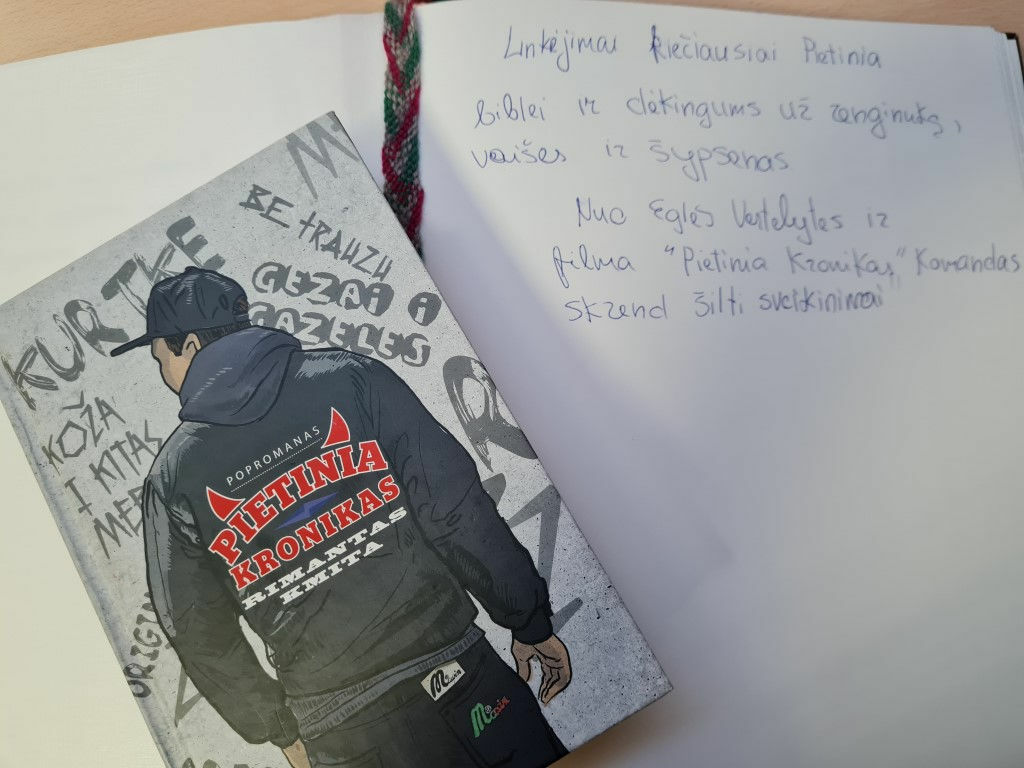 Linkėjimai kiečiausiai Pietinia
biblei ir dėkingums už renginuką,
vaišes ir šypsenas
Nuo Eglės Vertelytes ir
filma "Pietinia Kronikas" Komandas
skrend šilti sveikinimai"
KURTKE
BE TRAUZU
CEZAI I
GAZELES
KOŽA
I KITAS
MER
ORIGIN
POPROMANAS
PIETINIA
KRONIKAS
RIMANTAS
KMITA